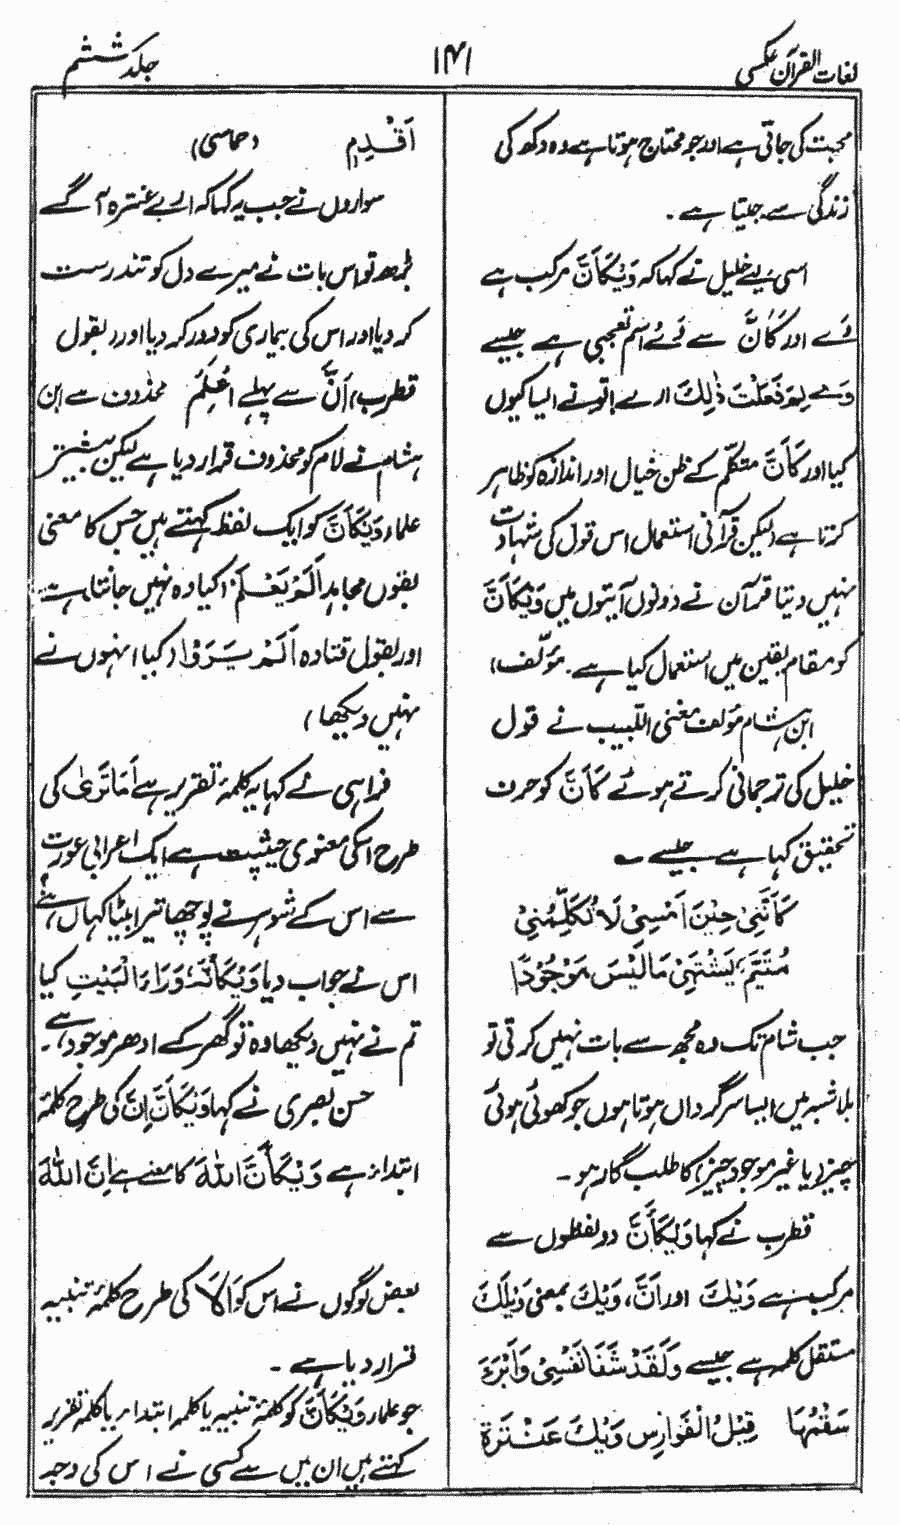 لغات القرآن عکسی
۱۴۱
جلد ششم
محبت کی جاتی ہے اور جو محتاج ہوتا ہے وہ دکھ کی
زندگی سے جیتا ہے۔
اسی لیے خلیل نے کہا کہ وَیْکَاَنَّ مرکب ہے
وَے اور کَاَنَّ سے وَےْ اسم تعجبی ہے جیسے
وَے لِمَ فَعَلْتَ ذٰلِکَ ارے! تو نے ایسا کیوں
کیا اور کَاَنَّ متکلم کے ظن خیال اور اندازہ کو ظاہر
کرتا ہے (لیکن قرآنی استعمال اس قول کی شہادت
نہیں دیتا قرآن نے دونوں آیتوں میں وَیْکَاَنَّ
کو مقام یقین میں استعمال کیا ہے۔ مؤلف)
ابن ہشام مؤلف مغنی اللبیب نے قول
خلیل کی ترجمانی کرتے ہوئے کَاَنَّ کو حرف
تحقیق کہا ہے جیسے ؎
کَاَنَّنِیْ حِیْنَ اَمْسِیْ لَا تُکَلِّمُنِیْ
مُتَیَّمٌ یَشْتَهِیْ مَا لَیْسَ مَوْجُوْدًا
جب شام تک وہ مجھ سے بات نہیں کرتی تو
بلاشبہ میں ایسا سرگرداں ہوتا ہوں جو کھوئی ہوئی
چیز (یا غیر موجود چیز) کا طلب گار ہو۔
قطرب نے کہا وَیْکَاَنَّ دو لفظوں سے
مرکب ہے وَیْكَ اور اَنَّ، وَیْكَ بمعنی وَیْلَكَ
مستقل کلمہ ہے جیسے وَلَقَدْ شَفَا نَفْسِیْ وَاَبْرَءَ
سَقْمَهَا قِیْلُ الْفَوَارِسِ وَیْكَ عَنْتَرَةُ
اَقْدِمِ (حماسی)
سواروں نے جب یہ کہا کہ ارے عنترہ آگے
بڑھ تو اس بات نے میرے دل کو تندرست
کر دیا اور اس کی بیماری کو دور کر دیا اور (بقول
قطرب) اَنَّ سے پہلے اَعْلَمُ محذوف ہے ابن
ہشام نے لام کو محذوف قرار دیا ہے لیکن بیشتر
علماء وَیْکَاَنَّ کو ایک لفظ کہتے ہیں جس کا معنی
بقول مجاہد اَلَمْ یَعْلَمْ (کیا وہ نہیں جانتا) ہے
اور بقول قتادہ اَلَمْ یَرَوْا (کیا انہوں نے
نہیں دیکھا)
فراہی نے کہا یہ کلمۂ تقریر ہے اَمَا تَرٰی کی
طرح اسکی معنوی حیثیت ہے ایک اعرابی عورت
سے اس کے شوہر نے پوچھا تیرا بیٹا کہاں ہے؟
اس نے جواب دیا وَیْکَاَنَّهٗ وَرَاءَ الْبَیْتِ کیا
تم نے نہیں دیکھا وہ تو گھر کے ادھر موجود ہے۔
حسن بصری نے کہا وَیْکَاَنَّ اِنَّ کی طرح کلمۂ
ابتداء ہے وَیْکَاَنَّ اللّٰهَ کا معنے ہے اِنَّ اللّٰهَ
بعض لوگوں نے اس کو اَلَا کی طرح کلمۂ تنبیہ
قرار دیا ہے۔
جو علماء وَیْکَاَنَّ کو کلمۂ تنبیہ یا کلمہ ابتداء یا کلمہ تقریر
کہتے ہیں ان میں سے کسی نے اس کی وجہ